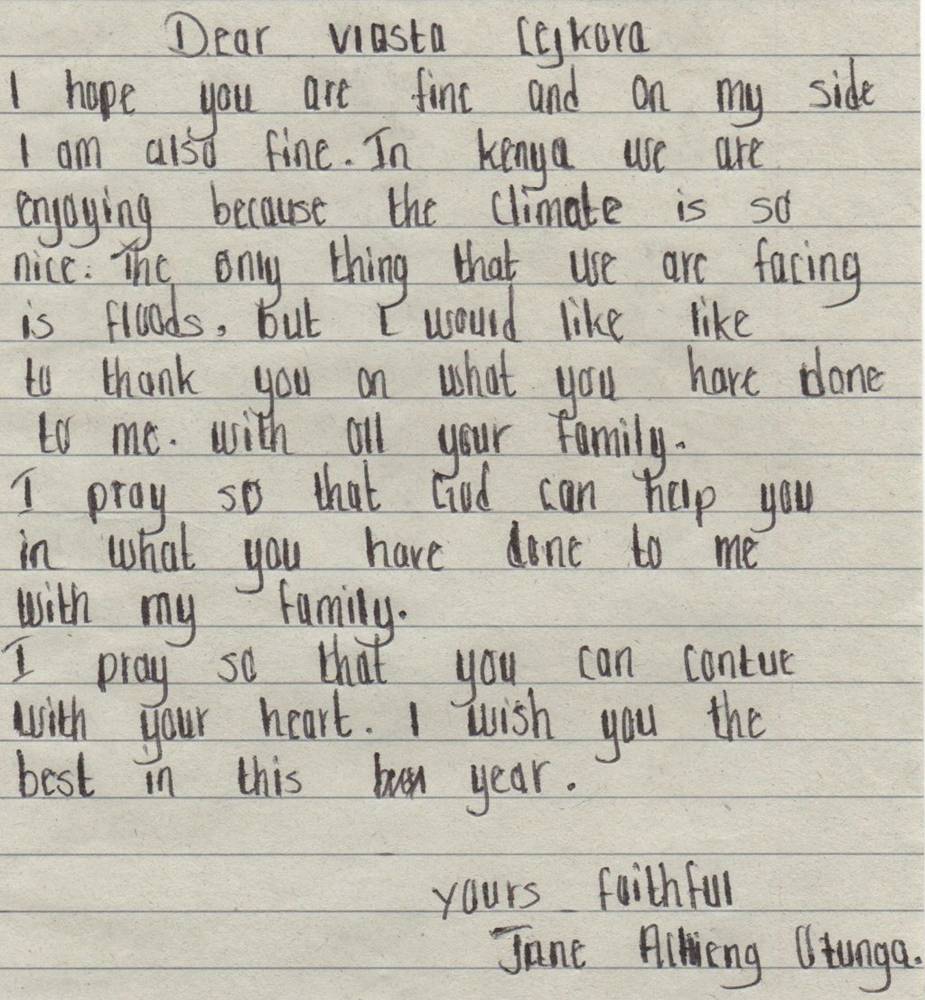 Dear Vlasta Cejkova
I hope you are fine and on my side
I am also fine. In kenya we are
enjoying because the climate is so
nice. The only thing that we are facing
is floods, but I would like like
to thank you on what you have done
to me. with all your family.
I pray so that God can help you
in what you have done to me
with my family.
I pray so that you can contue
with your heart. I wish you the
best in this year.
yours faithful
Jane Achieng Otunga.